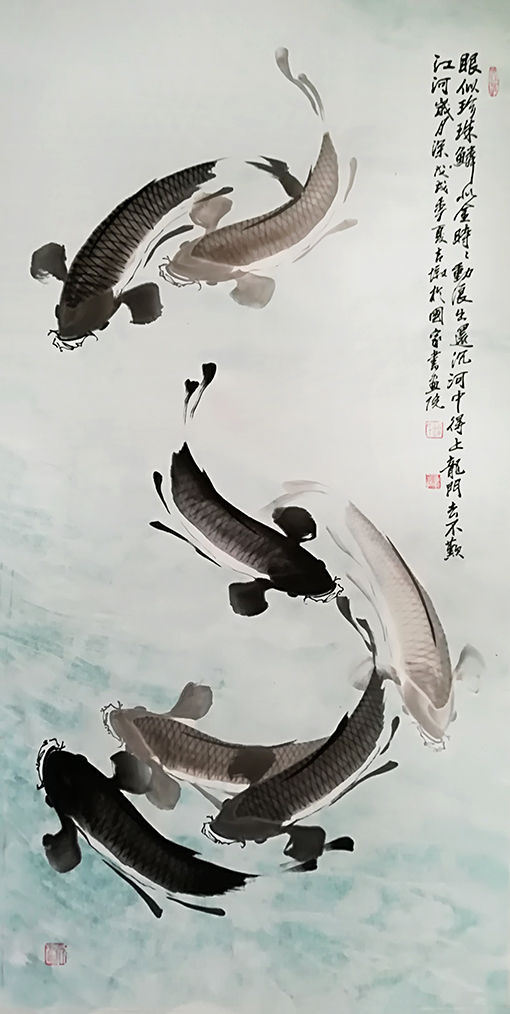 眼似珍珠鳞似金時〻動浪出還沉河中得上龍門去不歎
江河歲月深戊戌季夏古墩於國家書畫院